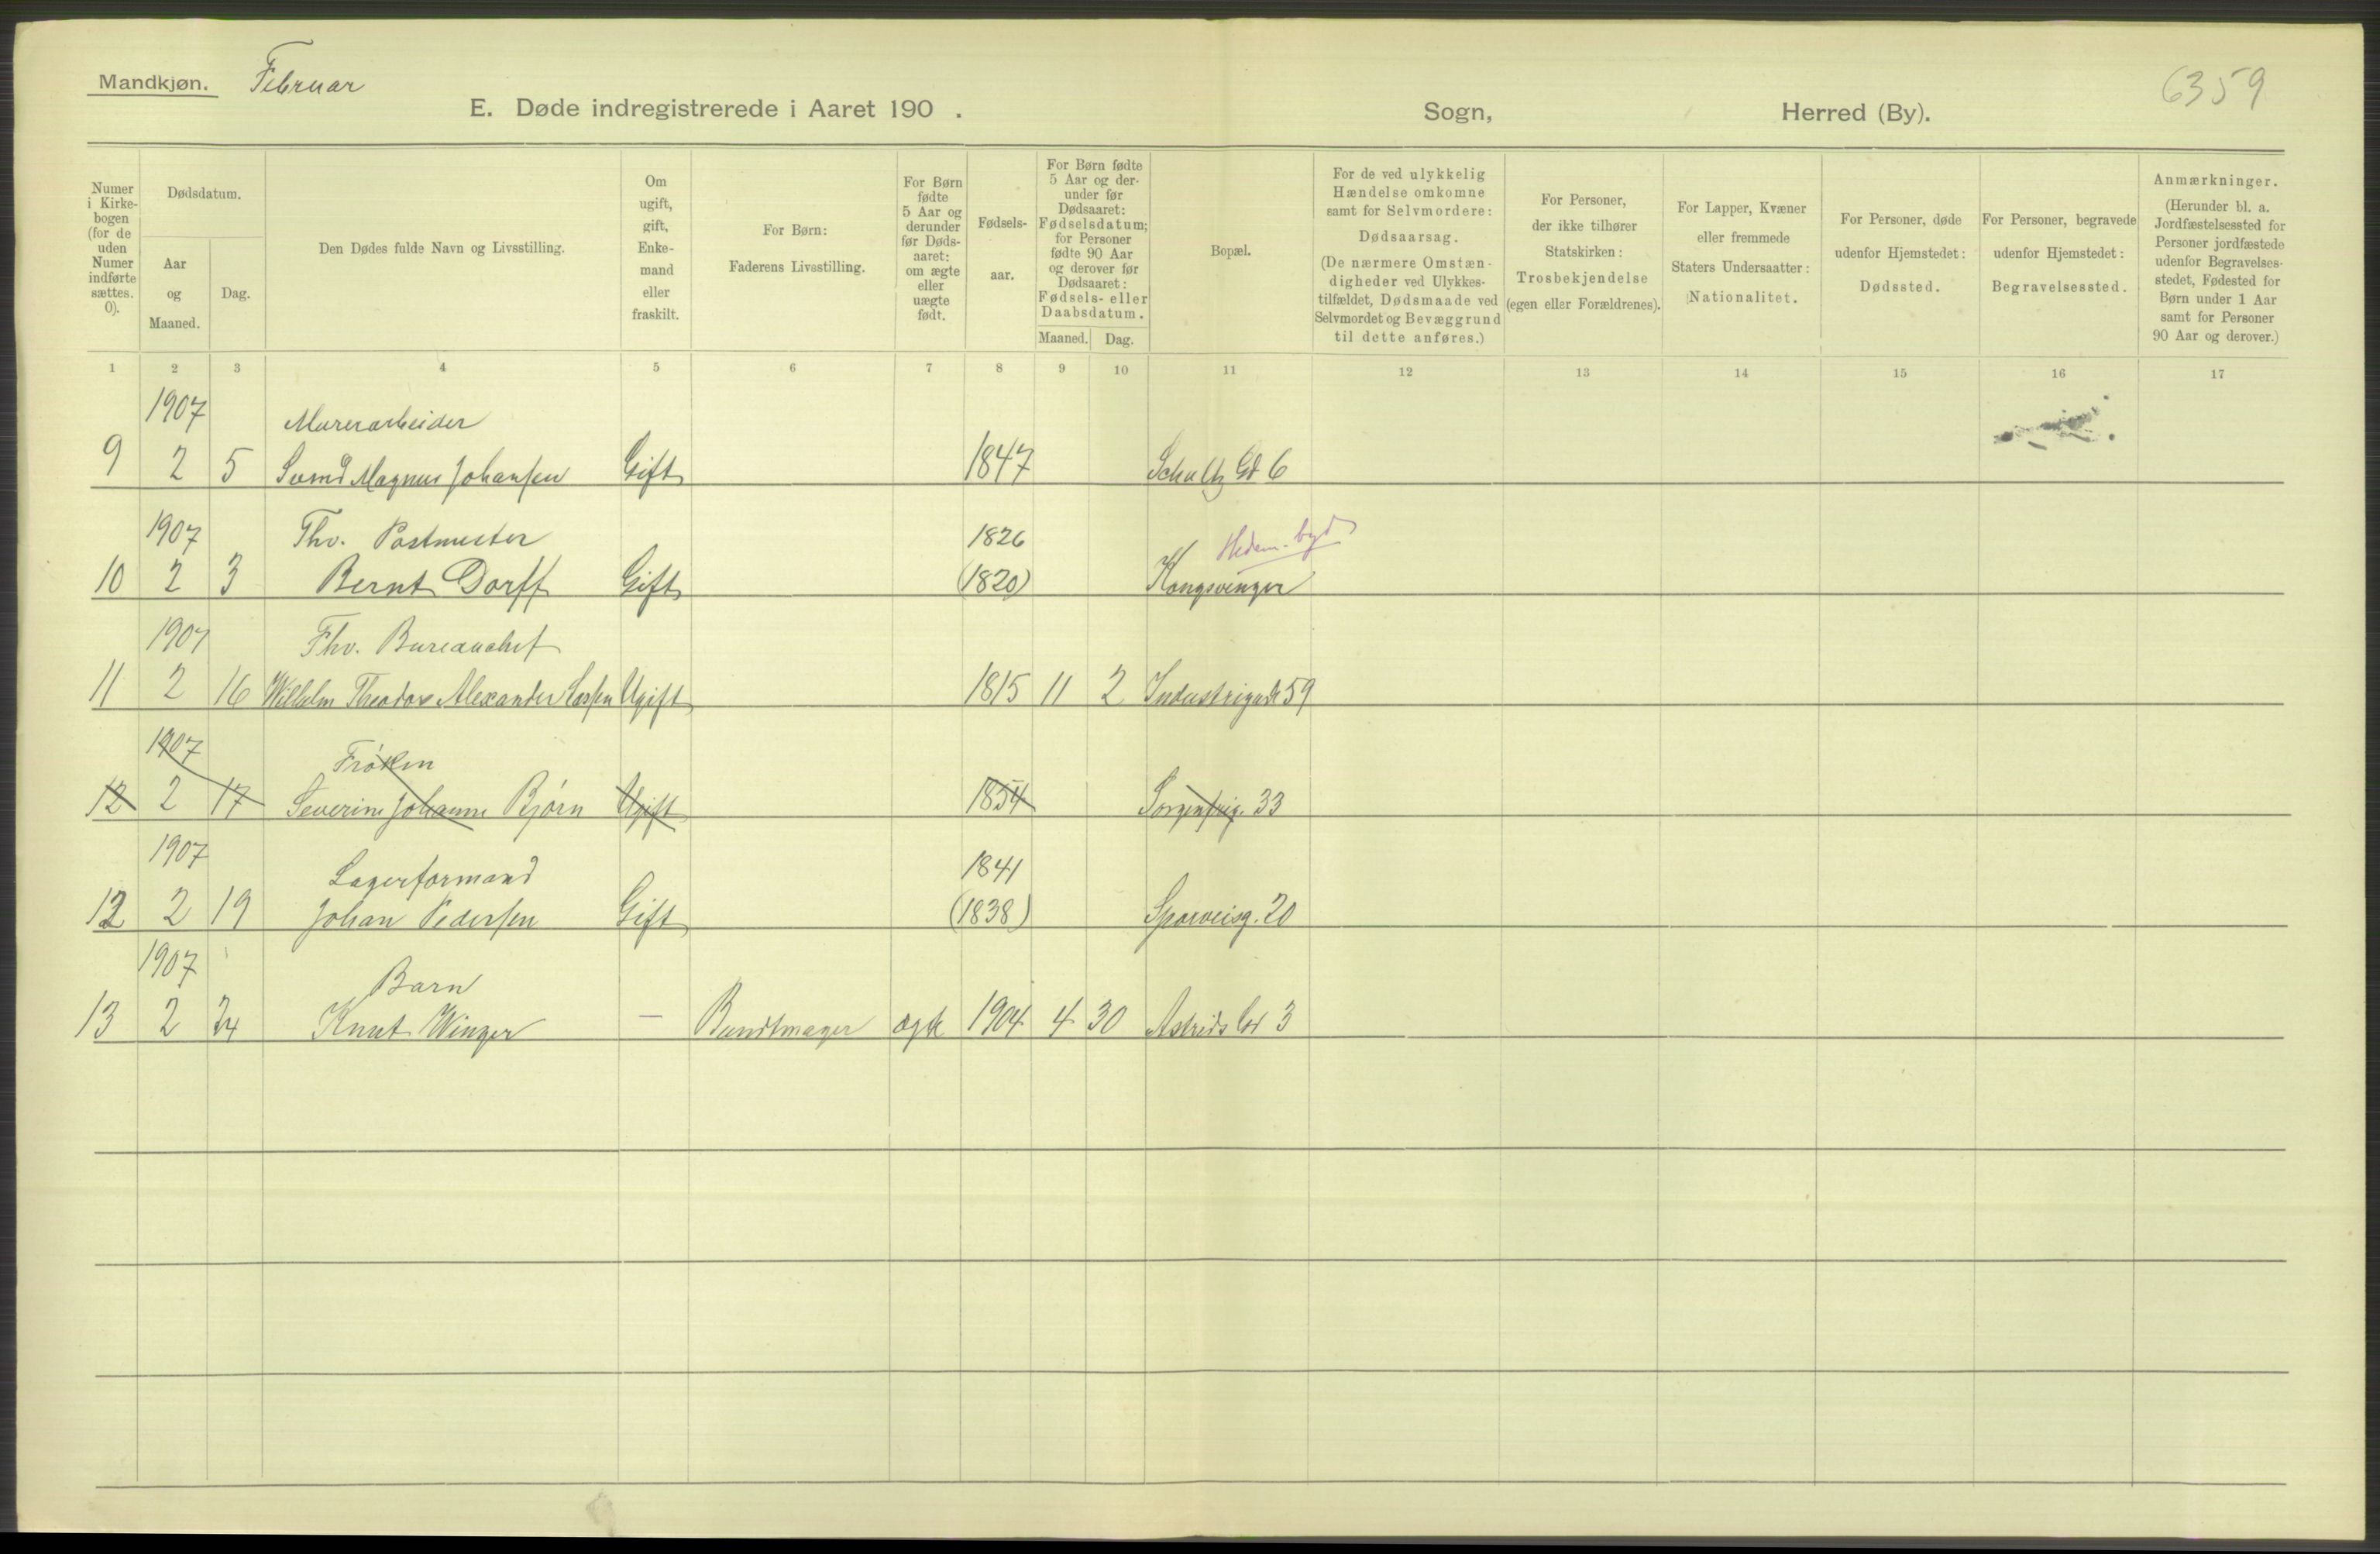 Mandkjøn. Februar
6359
E. Døde indregistrerede i Aaret 190 . Sogn, Herred (By).
Numer i Kirkebogen (for de uden Numer indførte sættes. 0).
Dødsdatum.
Aar og Maaned.
Dag.
Den Dødes fulde Navn og Livsstilling.
Om ugift, gift, Enkemand eller fraskilt.
For Børn: Faderens Livsstilling.
For Børn fødte 5 Aar og derunder før Dødsaaret: om ægte eller uægte født.
Fødselsaar.
For Børn fødte 5 Aar og derunder før Dødsaaret: Fødselsdatum; for Personer fødte 90 Aar og derover før Dødsaaret: Fødsels- eller Daabsdatum.
Maaned. Dag.
Bopæl.
For de ved ulykkelig Hændelse omkomne samt for Selvmordere: Dødsaarsag. (De nærmere Omstændigheder ved Ulykkestilfældet, Dødsmaade ved Selvmordet og Bevæggrund til dette anføres.)
For Personer, der ikke tilhører Statskirken: Trosbekjendelse (egen eller Forældrenes).
For Lapper, Kvæner eller fremmede Staters Undersaatter: Nationalitet.
For Personer, døde udenfor Hjemstedet: Dødssted.
For Personer, begravede udenfor Hjemstedet: Begravelsessted.
Anmærkninger. (Herunder bl. a. Jordfæstelsessted for Personer jordfæstede udenfor Begravelsesstedet, Fødested for Børn under 1 Aar samt for Personer 90 Aar og derover.)
1 2 3 4 5 6 7 8 9 10 11 12 13 14 15 16 17
1907 Murerarbeider
9 2 5 Magnus Johansen Gift 1847 Schultz Gd 6
1907 Fhv. Postmester 1826 Hedem. bygd
10 2 3 Bernt Dorff Gift (1820) Kongsvinger
1907 Fhv. Bureauchef
11 2 16 Wilhelm Theodor Alexander Lassen Ugift 1815 11 2 Industrigade 59
1907 Frøken
12 2 17 Severine Johanne Bjørn Ugift 1854 Sorgenfrig. 33
1907 Lagerformand 1841
12 2 19 Johan Pedersen Gift (1838) Sporveisg. 20
1907 Barn
13 2 24 Knut Winger — Bundtmager ægte 1904 4 30 Astrids Gd 3